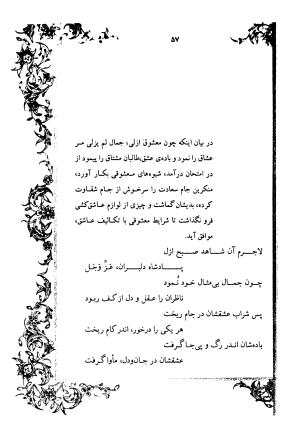 ۵۷
در بیان اینکه چون معشوق ازلی، جمال لم یزلی سر
عشاق را نمود و باده‌ی عشق، طالبان مشتاق را پیمود از
در امتحان درآمد، شیوه‌های معشوقی بکار آورد،
منکرین جام سعادت را سرخوش از جام شقاوت
کرده، بدیشان گماشت و چیزی از لوازم عاشق‌کشی
فرو نگذاشت تا شرایط معشوقی با تکالیف عاشق،
موافق آید.
لاجرم آن شاهد صبح ازل
پادشاه دلبران، عزّ وَجَل
چون جمال بی‌مثال خود نُمود
ناظران را عقل و دل از کف ربود
پس شراب عشقشان در جام ریخت
هر یکی را درخور، اندر کام ریخت
باده‌شان اندر رگ و پی جا گرفت
عشقشان در جان و دل، مأوا گرفت